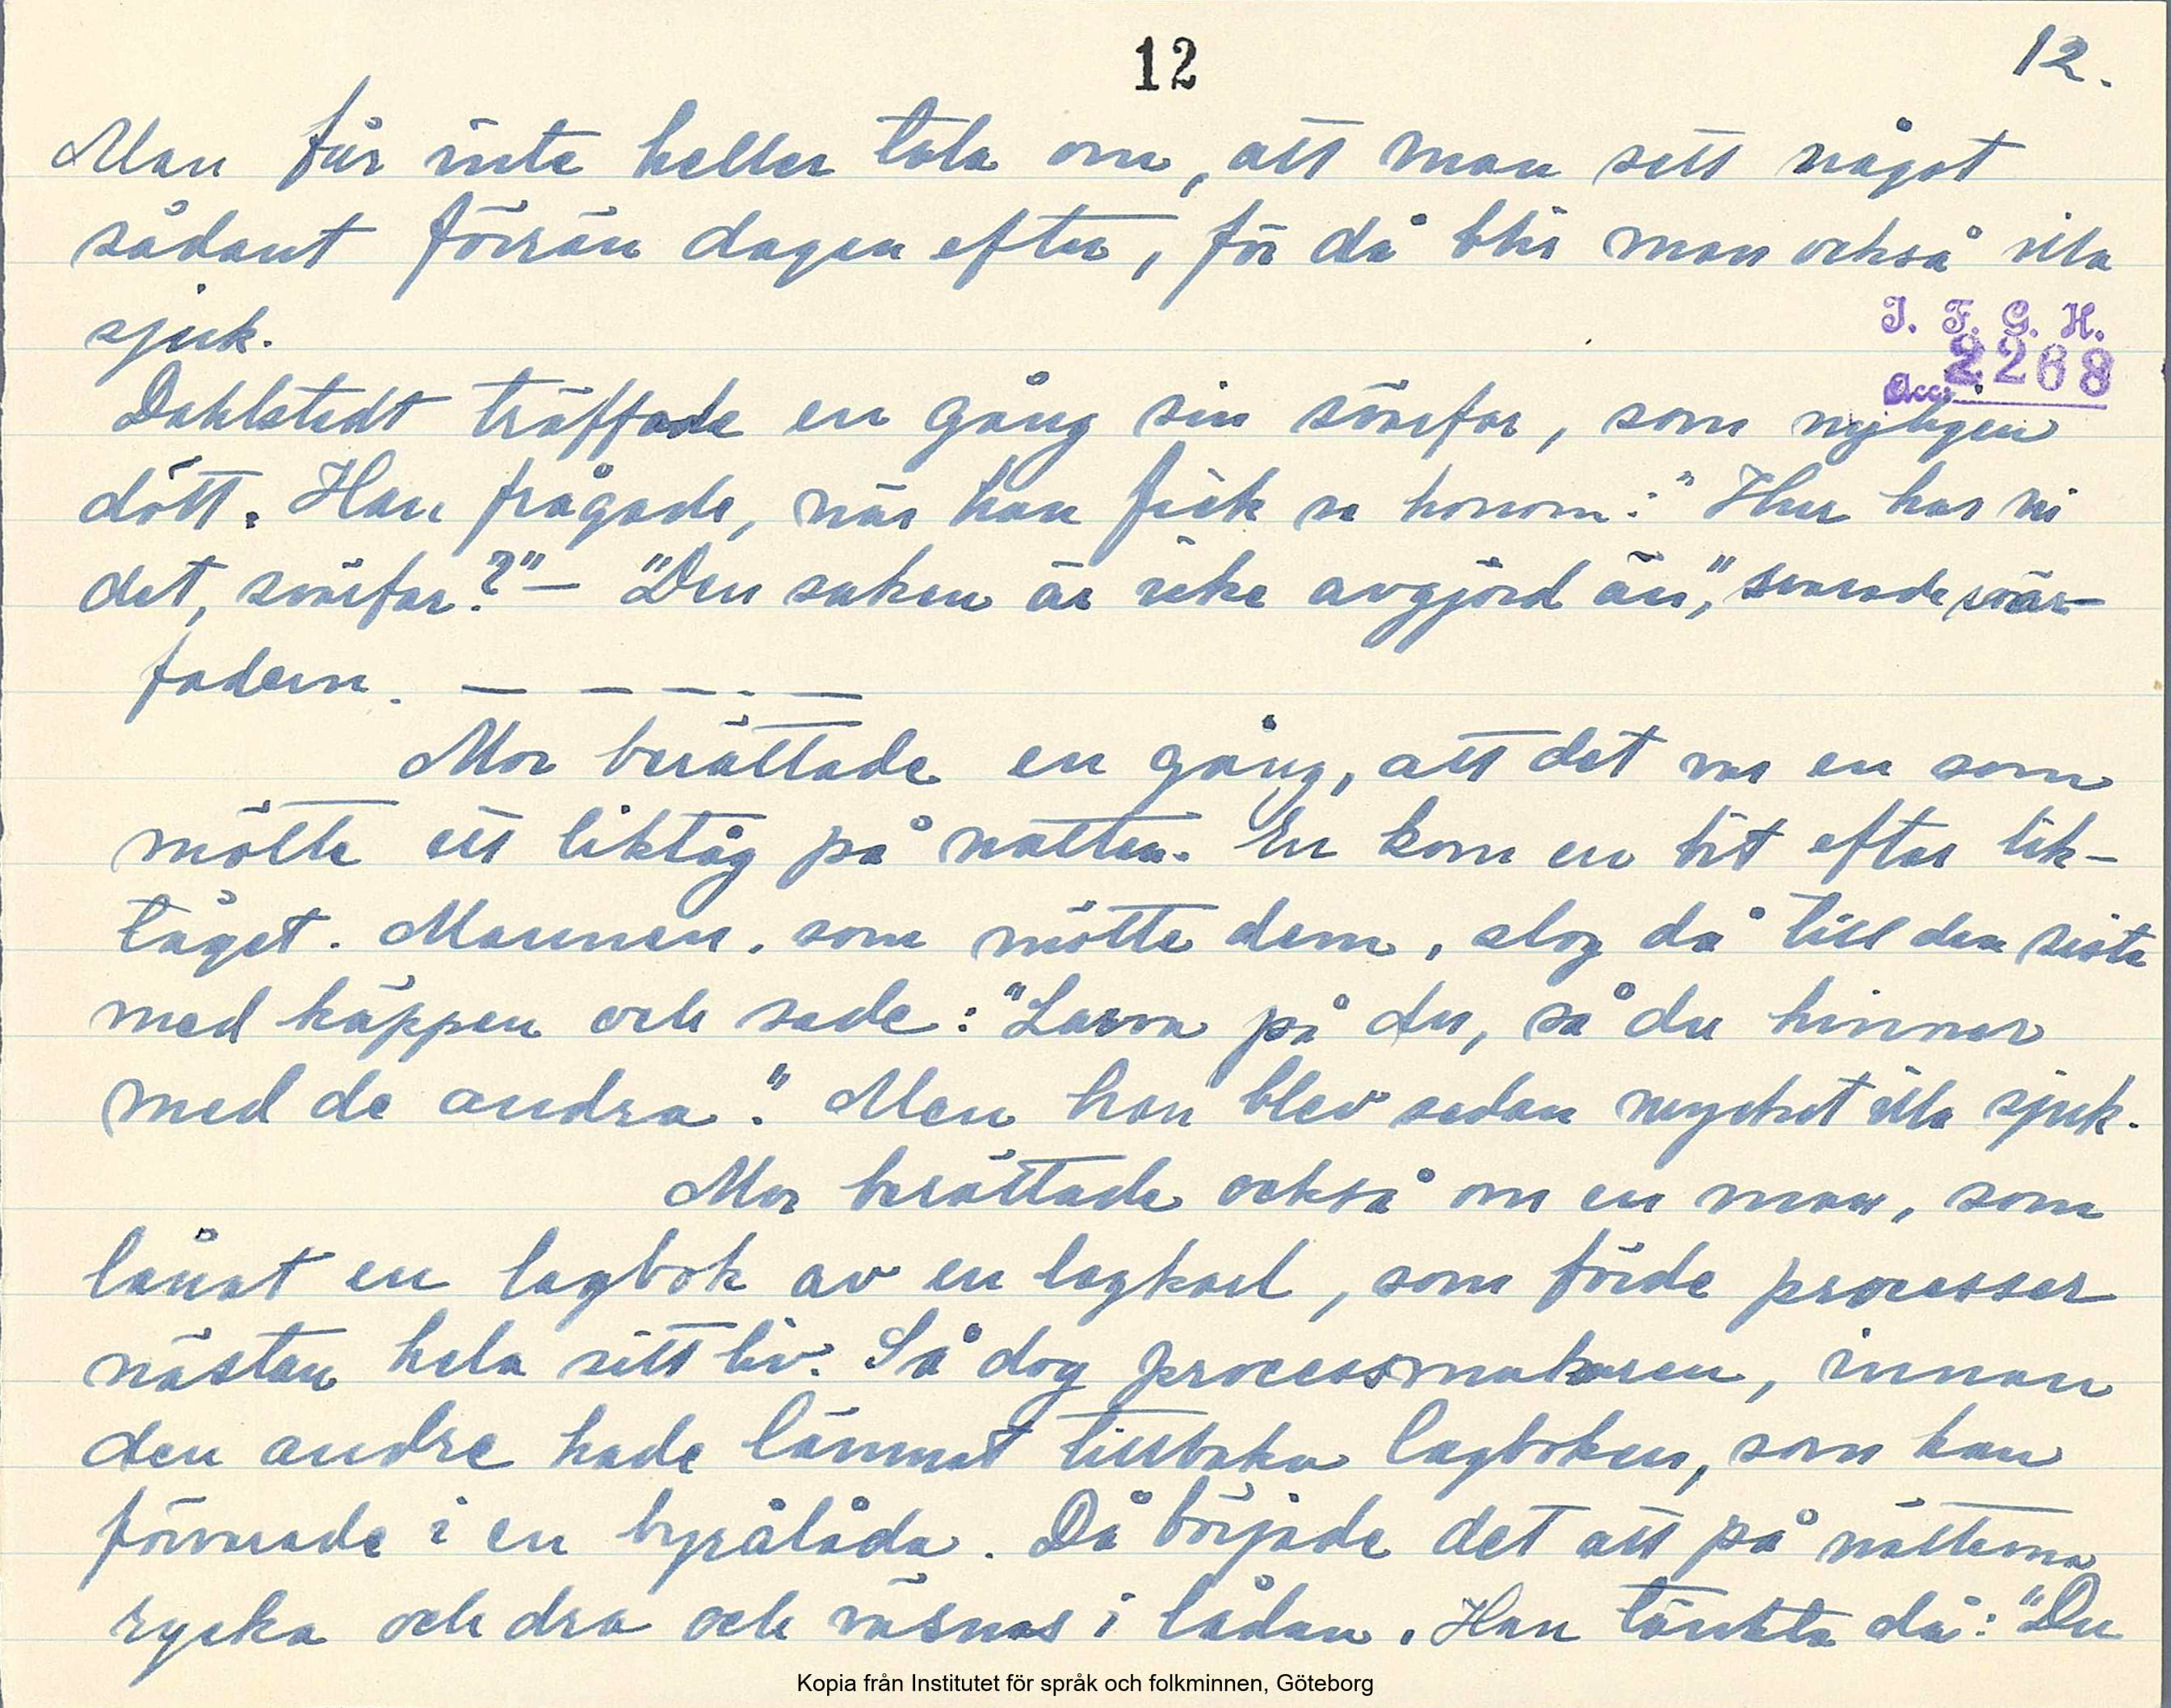 12
12.
Man får inte heller tala om, att man sett något
sådant förrän dagen efter, för då blir man också illa
sjuk.
I. F. G. H.
Acc. 2268
Dahlstedt träffade en gång sin svärfar, som nyligen
dött. Han frågade, när han fick se honom: "Hur har ni
det, svärfar?" — "Den saken är icke avgjord än", svarade svär-
fadern. — — — — —
Mor berättade en gång, att det var en som
mötte ett liktåg på natten. En kom en bit efter lik-
tåget. Mannen, som mötte dem, slog då till den siste
med käppen och sade: "Lasva på du, så du hinner
med de andra." Men han blev sedan mycket illa sjuk.
Mor berättade också om en man, som
lånat en lagbok av en lagkarl, som förde processer
nästan hela sitt liv. Så dog processmakaren, innan
den andre hade lämnat tillbaka lagboken, som han
förvarade i en byrålåda. Då började det att på nätterna
rycka och dra och väsnas i lådan. Han tänkte då: "Du
Kopia från Institutet för språk och folkminnen, Göteborg